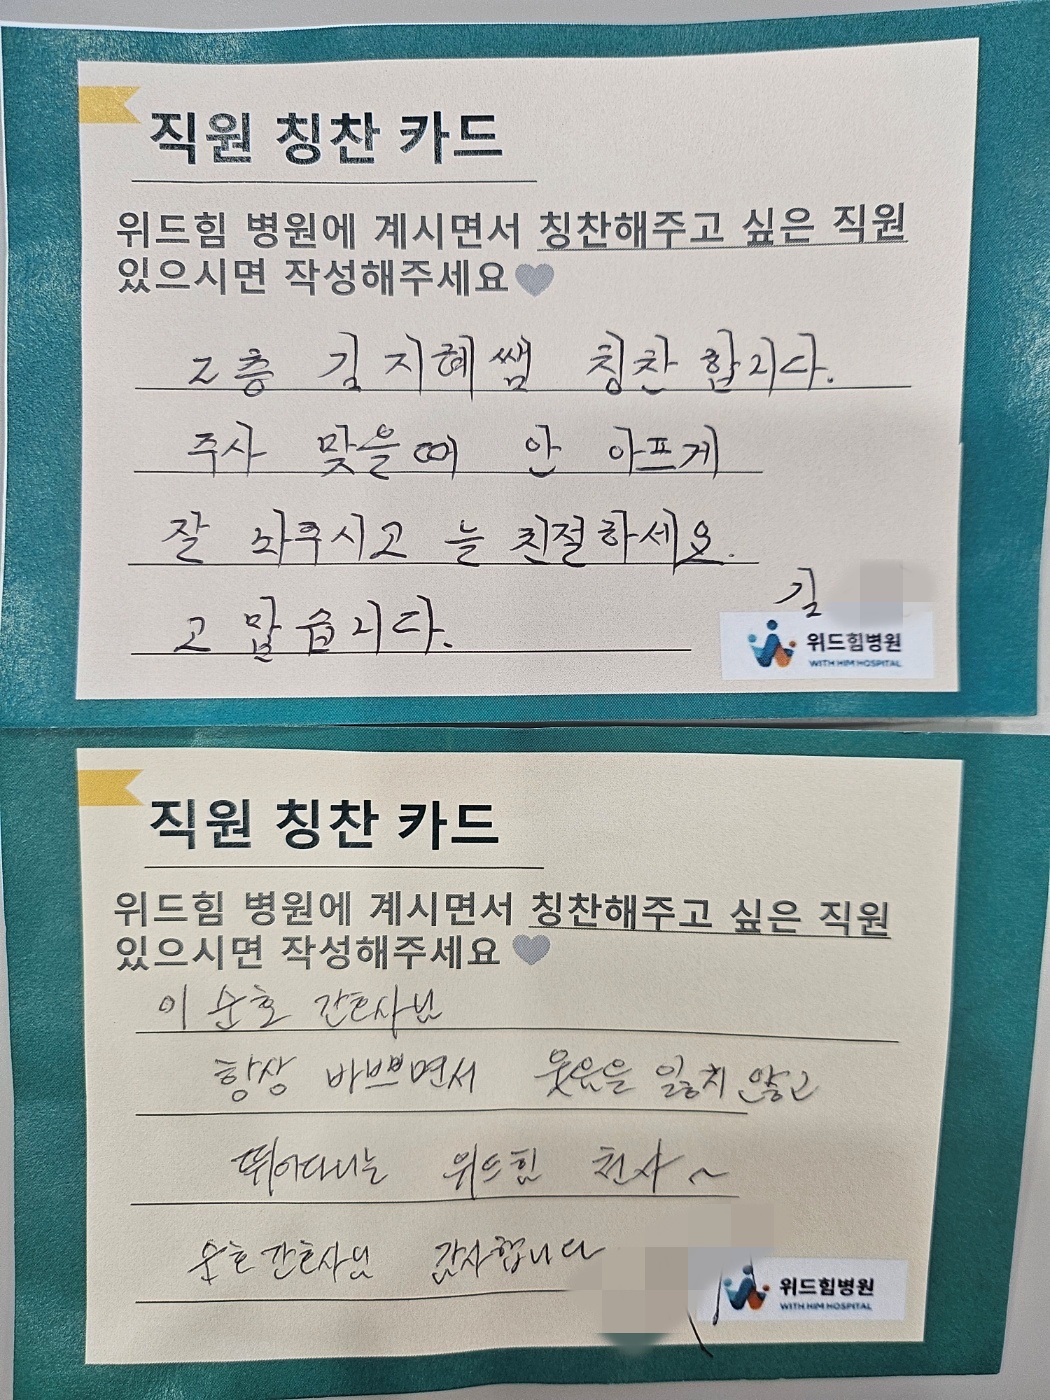 직원 칭찬 카드
위드힘 병원에 계시면서 칭찬해주고 싶은 직원
있으시면 작성해주세요
2층 김지혜쌤 칭찬합니다.
주사 맞을때 안 아프게
잘 놔주시고 늘 친절하세요.
고맙습니다.
김
위드힘병원
WITH HIM HOSPITAL
직원 칭찬 카드
위드힘 병원에 계시면서 칭찬해주고 싶은 직원
있으시면 작성해주세요
이순호 간호사님
항상 바쁘면서 웃음을 잃치 않고
뛰어다니는 위드힘 천사~
순호간호사님 감사합니다
위드힘병원
WITH HIM HOSPITAL